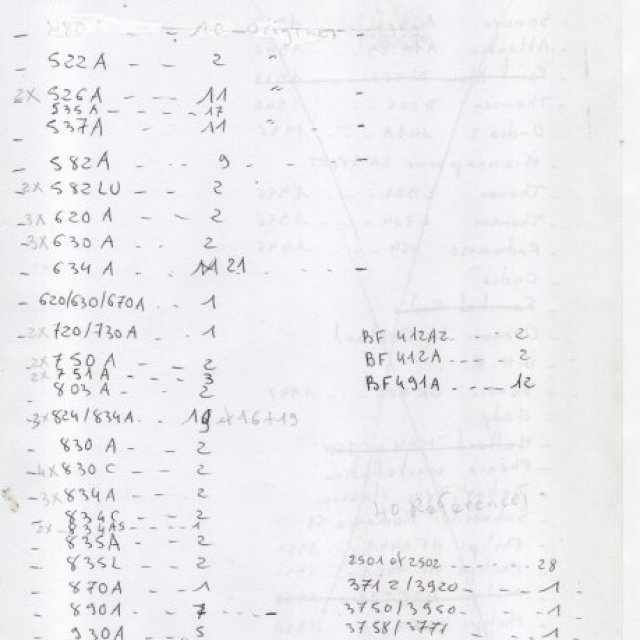 - 522A - - 2 "
2x 526A - - 11 " -
- 535A - - - - 17
- 537A - - 11 " -
- 582A - - - 9 - - - -
- 2x 582LU - - 2
- 3x 620A - - 2
- 3x 630A - - 2
- 634A - - 21 - - - -
- 620/630/670A - - 1
- 2x 720/730A - - 1
- 2x 750A - - - 2
- 2x 751A - - - 3
- 803A - - - 2
- 3x 824/834A - - 16+19
- 830A - - - 2
- 4x 830C - - - 2
- 3x 834A - - - 2
- 834C - - - 2
- 2x - - - - 1
- 835A - - - 2
- 835L - - 2
- 870A - - - 1
- 890A - - - 7 - - -
- 930A - - - 5
BF 412A2 - - - - 2
BF 412A - - - - 2
BF 491A - - - - 12
40 References
2501 et 2502 - - - - - - - 28
3712/3920 - - - - - - 1 -
3750/3950 - - - - - - 1 -
3758/3771 - - - - - 1